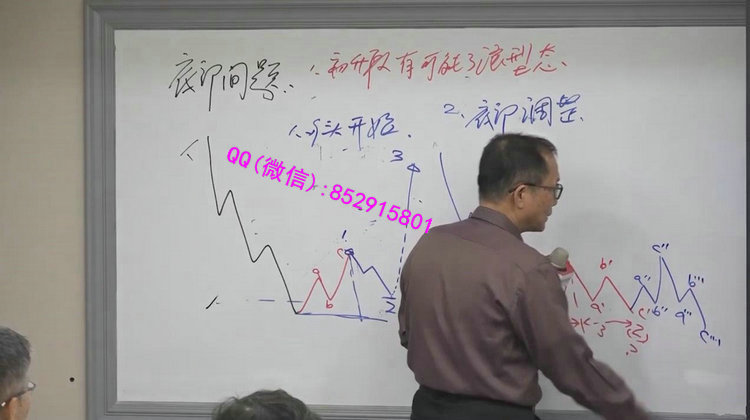 底部问题、 1、初升段有可能3浪型态
1、多头开始、 2、底部调整
QQ(微信):852915801
3
1
a b c
2
b' c'' b'''
a'' b''
1 a' c' a''' c'''
K-3 (2)
?